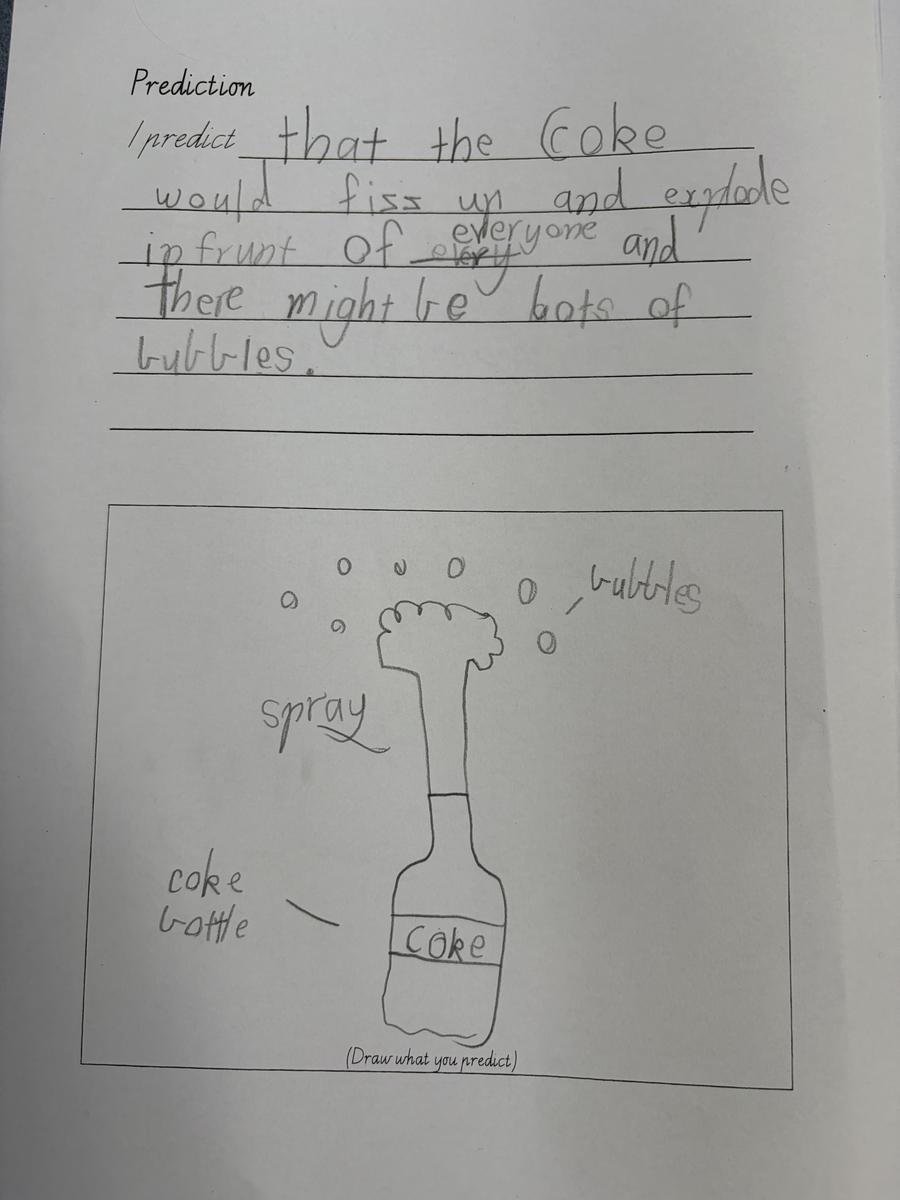 Prediction
I predict that the Coke
would fiss up and explode
in frunt of every everyone and
There might be bots of
bubbles.
bubbles
spray
coke
bottle
Coke
(Draw what you predict)